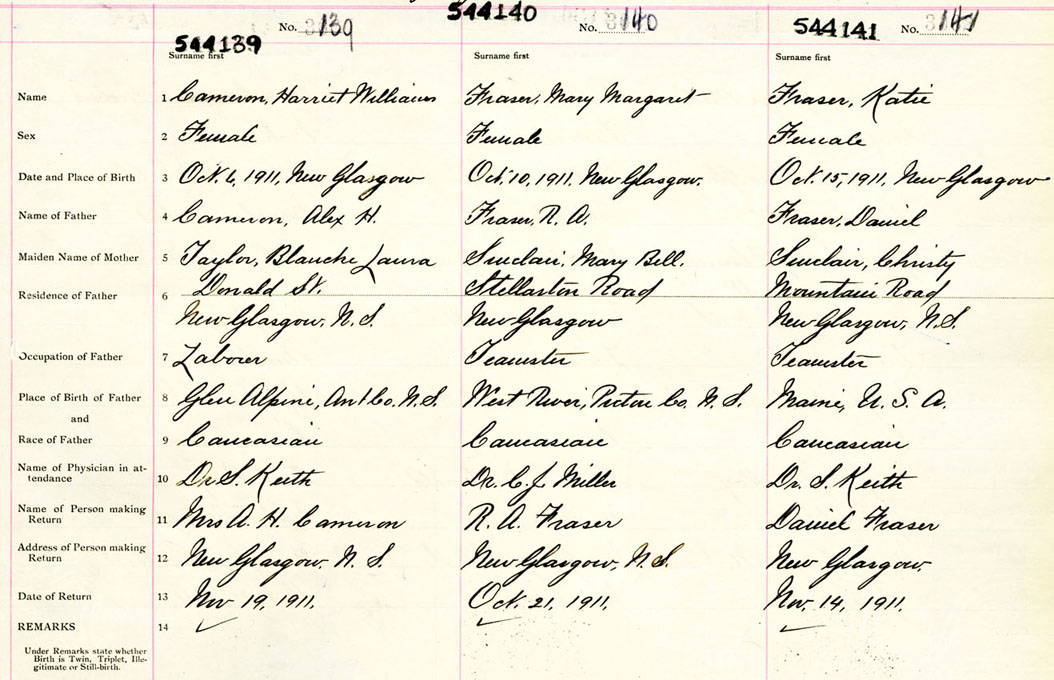 544139 No. 3139 544140 No. 3140 544141 No. 3141
Surname first Surname first Surname first
Name 1 Cameron, Harriet Williams Fraser, Mary Margaret Fraser, Katie
Sex 2 Female Female Female
Date and Place of Birth 3 Oct. 6, 1911, New Glasgow Oct. 10, 1911. New Glasgow. Oct. 15, 1911. New Glasgow
Name of Father 4 Cameron, Alex H. Fraser, R. A. Fraser, Daniel
Maiden Name of Mother 5 Taylor, Blanche Laura Sinclair, Mary Bell. Sinclair, Christy
Residence of Father 6 Donald St. Stellarton Road Mountain Road
New Glasgow, N. S. New Glasgow New Glasgow, N.S.
Occupation of Father 7 Laborer Teamster Teamster
Place of Birth of Father 8 Glen Alpine, Ant Co. N.S. West River, Pictou Co. N. S. Maine, U. S. A.
and
Race of Father 9 Caucasian Caucasian Caucasian
Name of Physician in at-
tendance 10 Dr S. Keith Dr. C. J. Miller Dr. S. Keith
Name of Person making
Return 11 Mrs A. H. Cameron R. A. Fraser Daniel Fraser
Address of Person making
Return 12 New Glasgow, N. S. New Glasgow, N.S. New Glasgow
Date of Return 13 Nov 19, 1911. Oct. 21, 1911. Nov. 14, 1911.
REMARKS 14
Under Remarks state whether
Birth is Twin, Triplet, Ille-
gitimate or Still-birth.